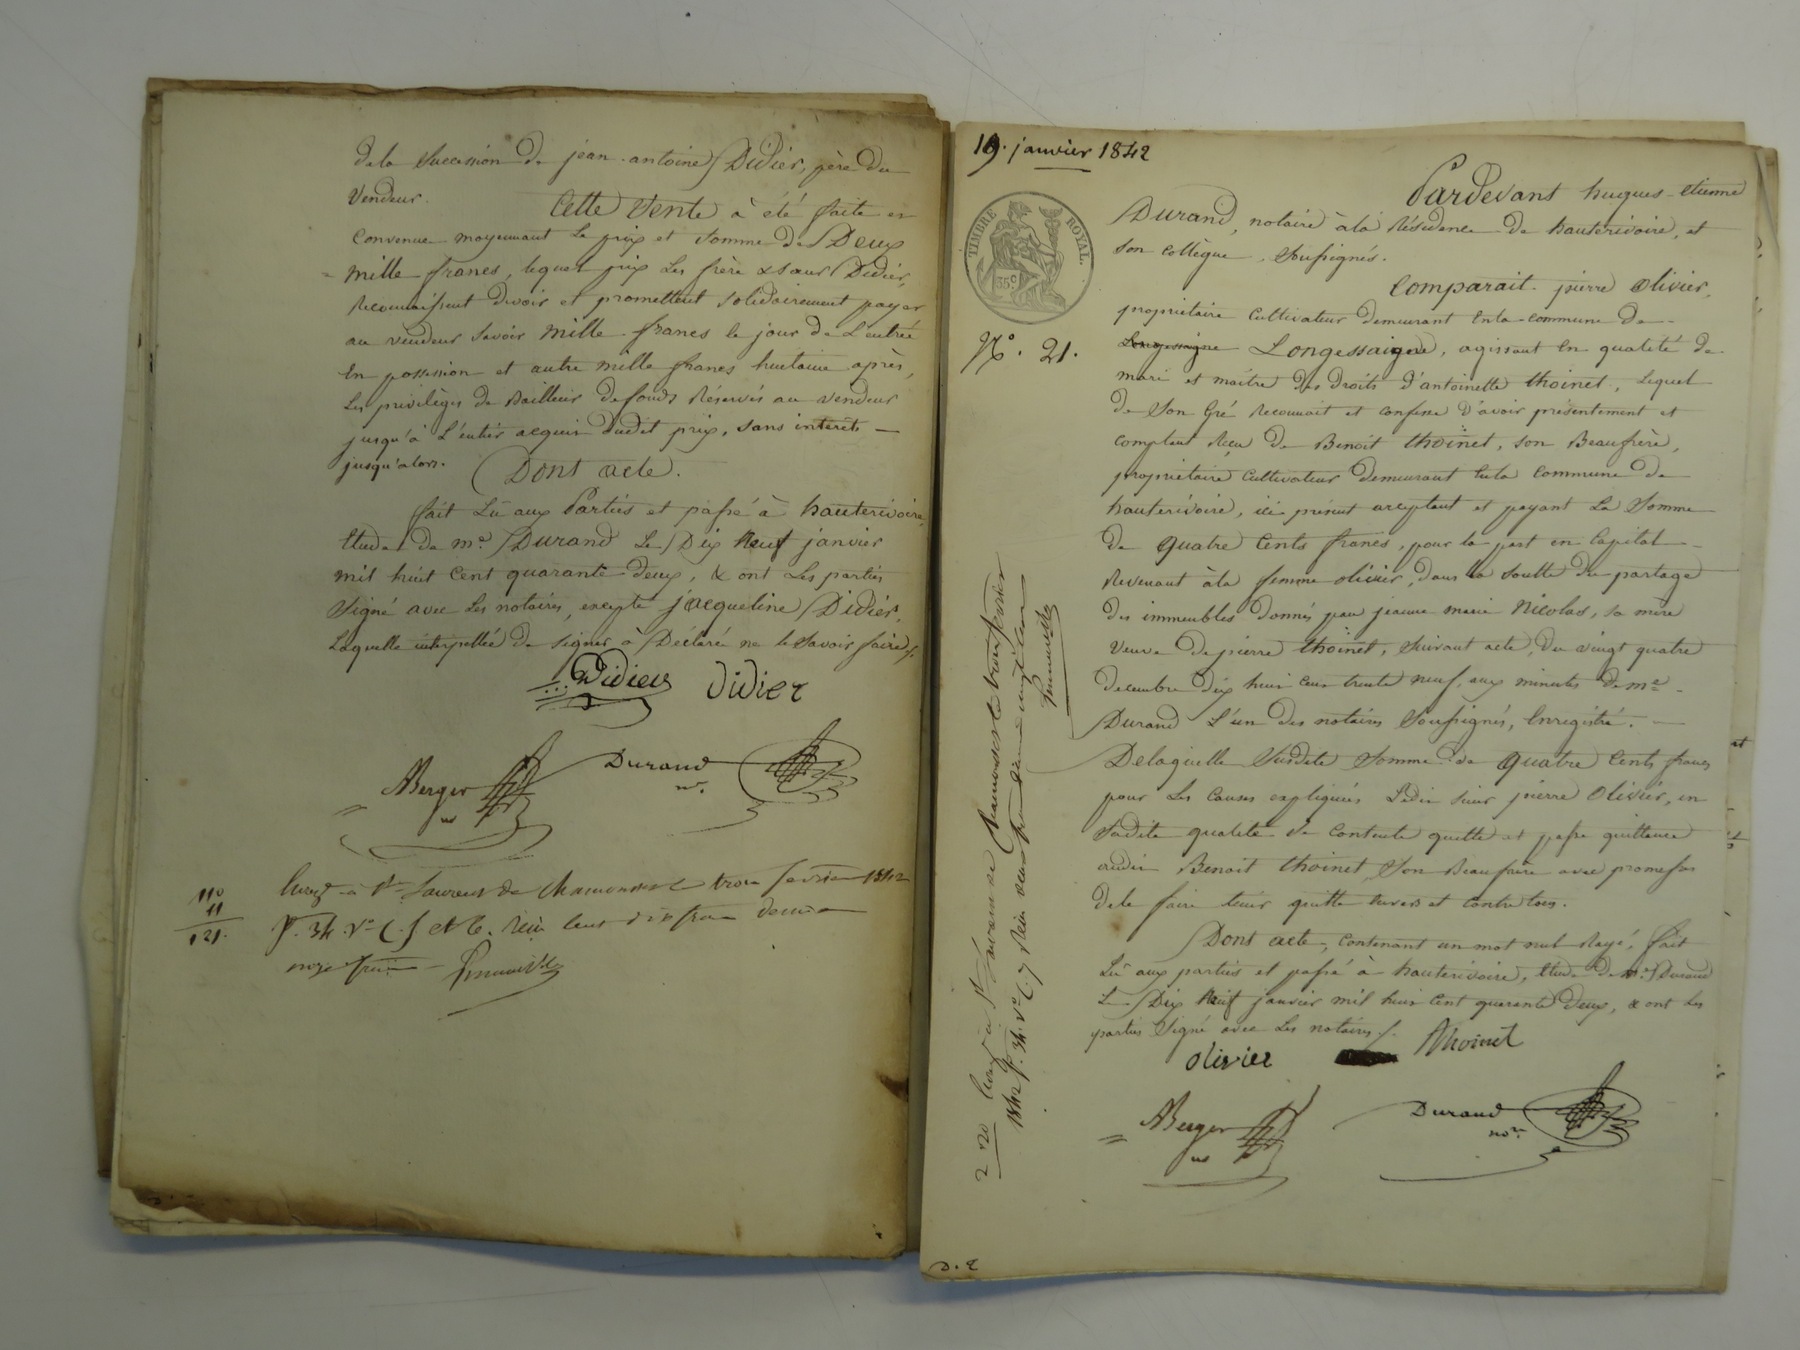 dela Succession de jean-antoine Didier, père du
Vendeur.
Cette Vente à été faite et
Convenue moyennant le prix et Somme de Deux
mille francs, lequel prix les frère & sœur Didier,
Reconnaissent devoir et promettent solidairement payer
au vendeur Savoir mille francs le jour de L'entrée
en possession et autre mille francs huitaine après,
Les privilèges de Bailleur defonds Réservés au vendeur
jusqu'à L'entier acquis dudit prix, sans intérêts
jusqu'alors.
Dont acte.
fait Lû aux Parties et passé à hauterivoire,
Etude de me. Durand Le Dix Neuf janvier
mil huit Cent quarante deux, & ont Les parties
Signé avec Les notaires, excepté jacqueline Didier,
Laquelle interpellée de signer à Déclaré ne le savoir faire./.
Didier Didier
Berger
Durand
nre.
Enregé à St Laurent de Chamousset trois février 1842
fo. 34. vo C. 5 et 6. Reçu cent dix francs décime
onze francs
110
11
121.
19. janvier 1842
TIMBRE ROYAL.
35 c.
No. 21.
Pardevant hugues-Etienne
Durand, notaire àla Résidence de hauterivoire, et
son collègue, Soussignés.
Comparait pierre olivier,
propriétaire Cultivateur demeurant Enla commune de
Longessaigne Longessaigne, agissant en qualité de
mari et maître des droits d'antoinette thoinet, Lequel
de Son Gré Reconnait et confesse D'avoir présentement et
comptant Reçu de Benoit thoinet, son Beaufrère,
propriétaire Cultivateur demeurant Enla commune de
hauterivoire, ici présent acceptant et payant La Somme
de quatre Cents francs, pour la part en Capital
Revenant àla femme olivier, dans la soulte du partage
des immeubles donnés par jeanne marie Nicolas, sa mère
veuve de pierre thoinet, Suivant acte, du vingt quatre
décembre dix huit cent trente neuf, aux minutes de me.
Durand L'un des notaires Soussignés, Enregistré.
Delaquelle Susdite Somme de quatre Cents francs
pour les causes expliquées Ledit sieur pierre olivier, en
Sadite qualité se contente quitte et passe quittance
audit Benoit thoinet, son Beaufrère avec promesse
dele faire tenir quitte Envers et contre tous.
Dont acte, contenant un mot nul Rayé, fait
Lû aux parties et passé à hauterivoire, Etude de me. Durand
Le Dix Neuf janvier mil huit cent quarante Deux, & ont Les
parties Signé avec Les notaires./.
olivier
Thoinet
Berger
Durand
nore.
2 20 Enregé à St Laurent de Chamousset le trois février
1842 fo. 34. vo C. 7 Reçu deux francs décime vingt cent
D. E